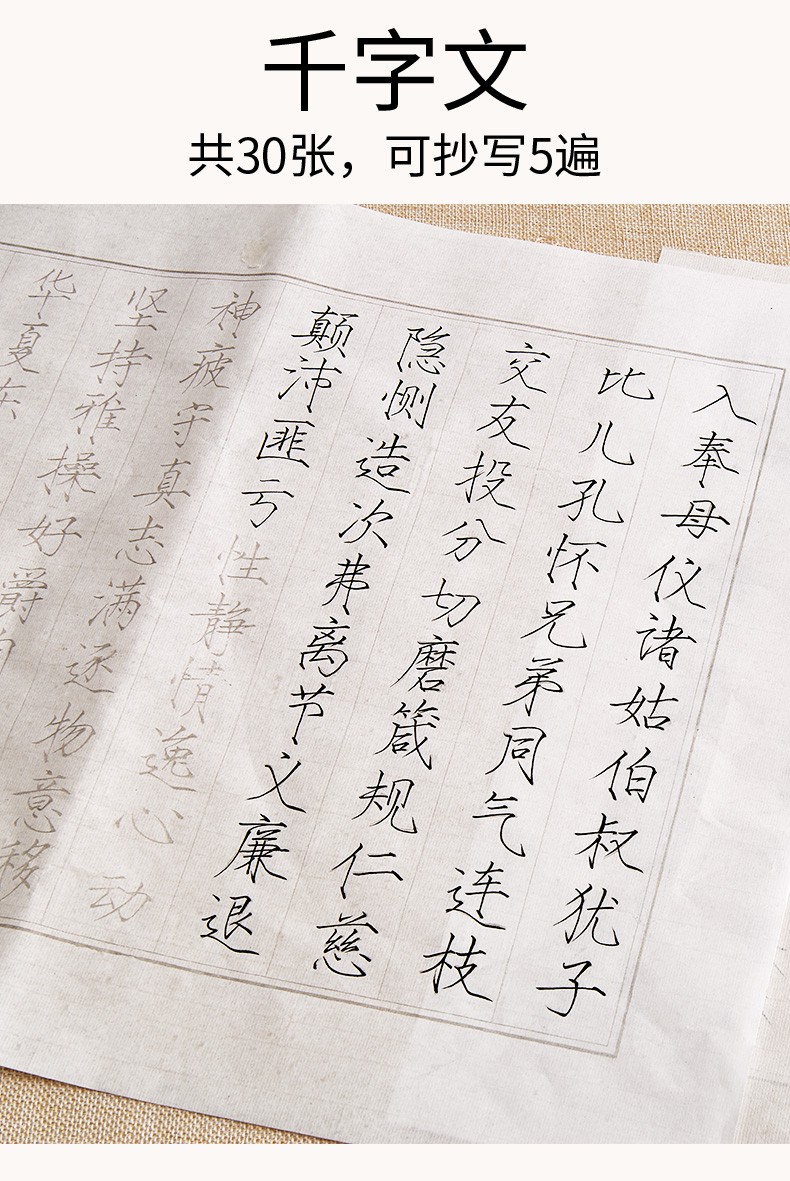 千字文
共30张，可抄写5遍
入奉母仪诸姑伯叔犹子
比儿孔怀兄弟同气连枝
交友投分切磨箴规仁慈
隐恻造次弗离节义廉退
颠沛匪亏性静情逸心动
神疲守真志满逐物意移
坚持雅操好爵自
华夏东